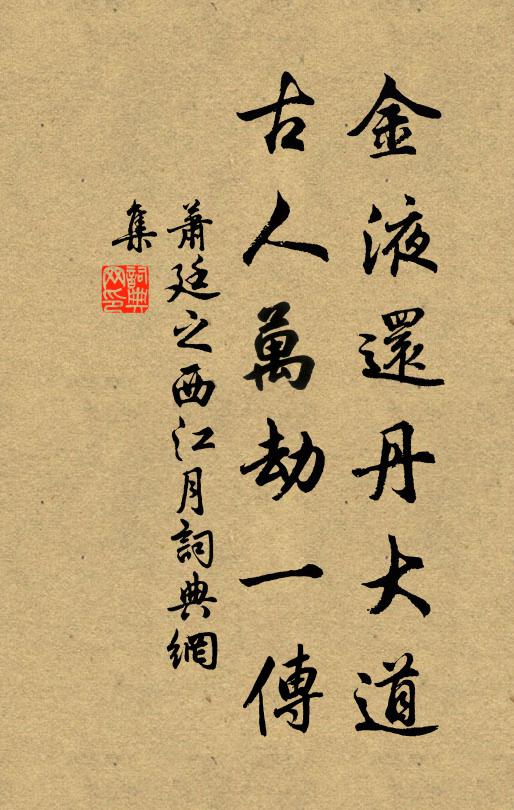 金液還丹大道
古人萬劫一傳
蕭廷之西江月詞典網
集
詞典网印